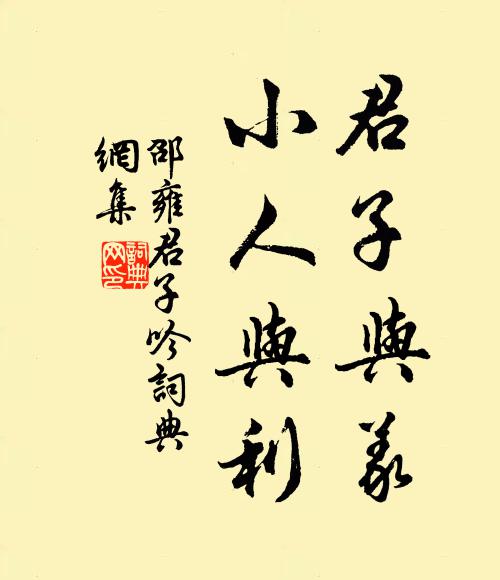 君子與義
小人與利
邵雍君子吟詞典
網集
詞典网印